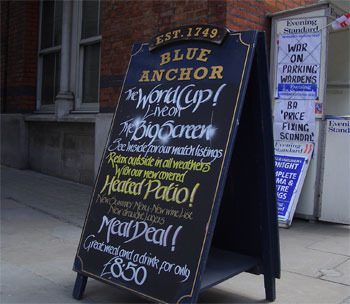 EST. 1749
BLUE
ANCHOR
The World Cup!
Live on
The Big Screen
See Inside for our match listings
Relax outside in all weathers
With our new covered
Heated Patio!
New Summer Menu - New wine list
New draught Lagers
Meal Deal!
Great meal and a drink for only
£8·50
Evening
Standard
WAR ON
PARKING
WARDENS
Evening
Standard
BA
'PRICE
FIXING
SCANDAL'
COMPLETE
Evening
Standard